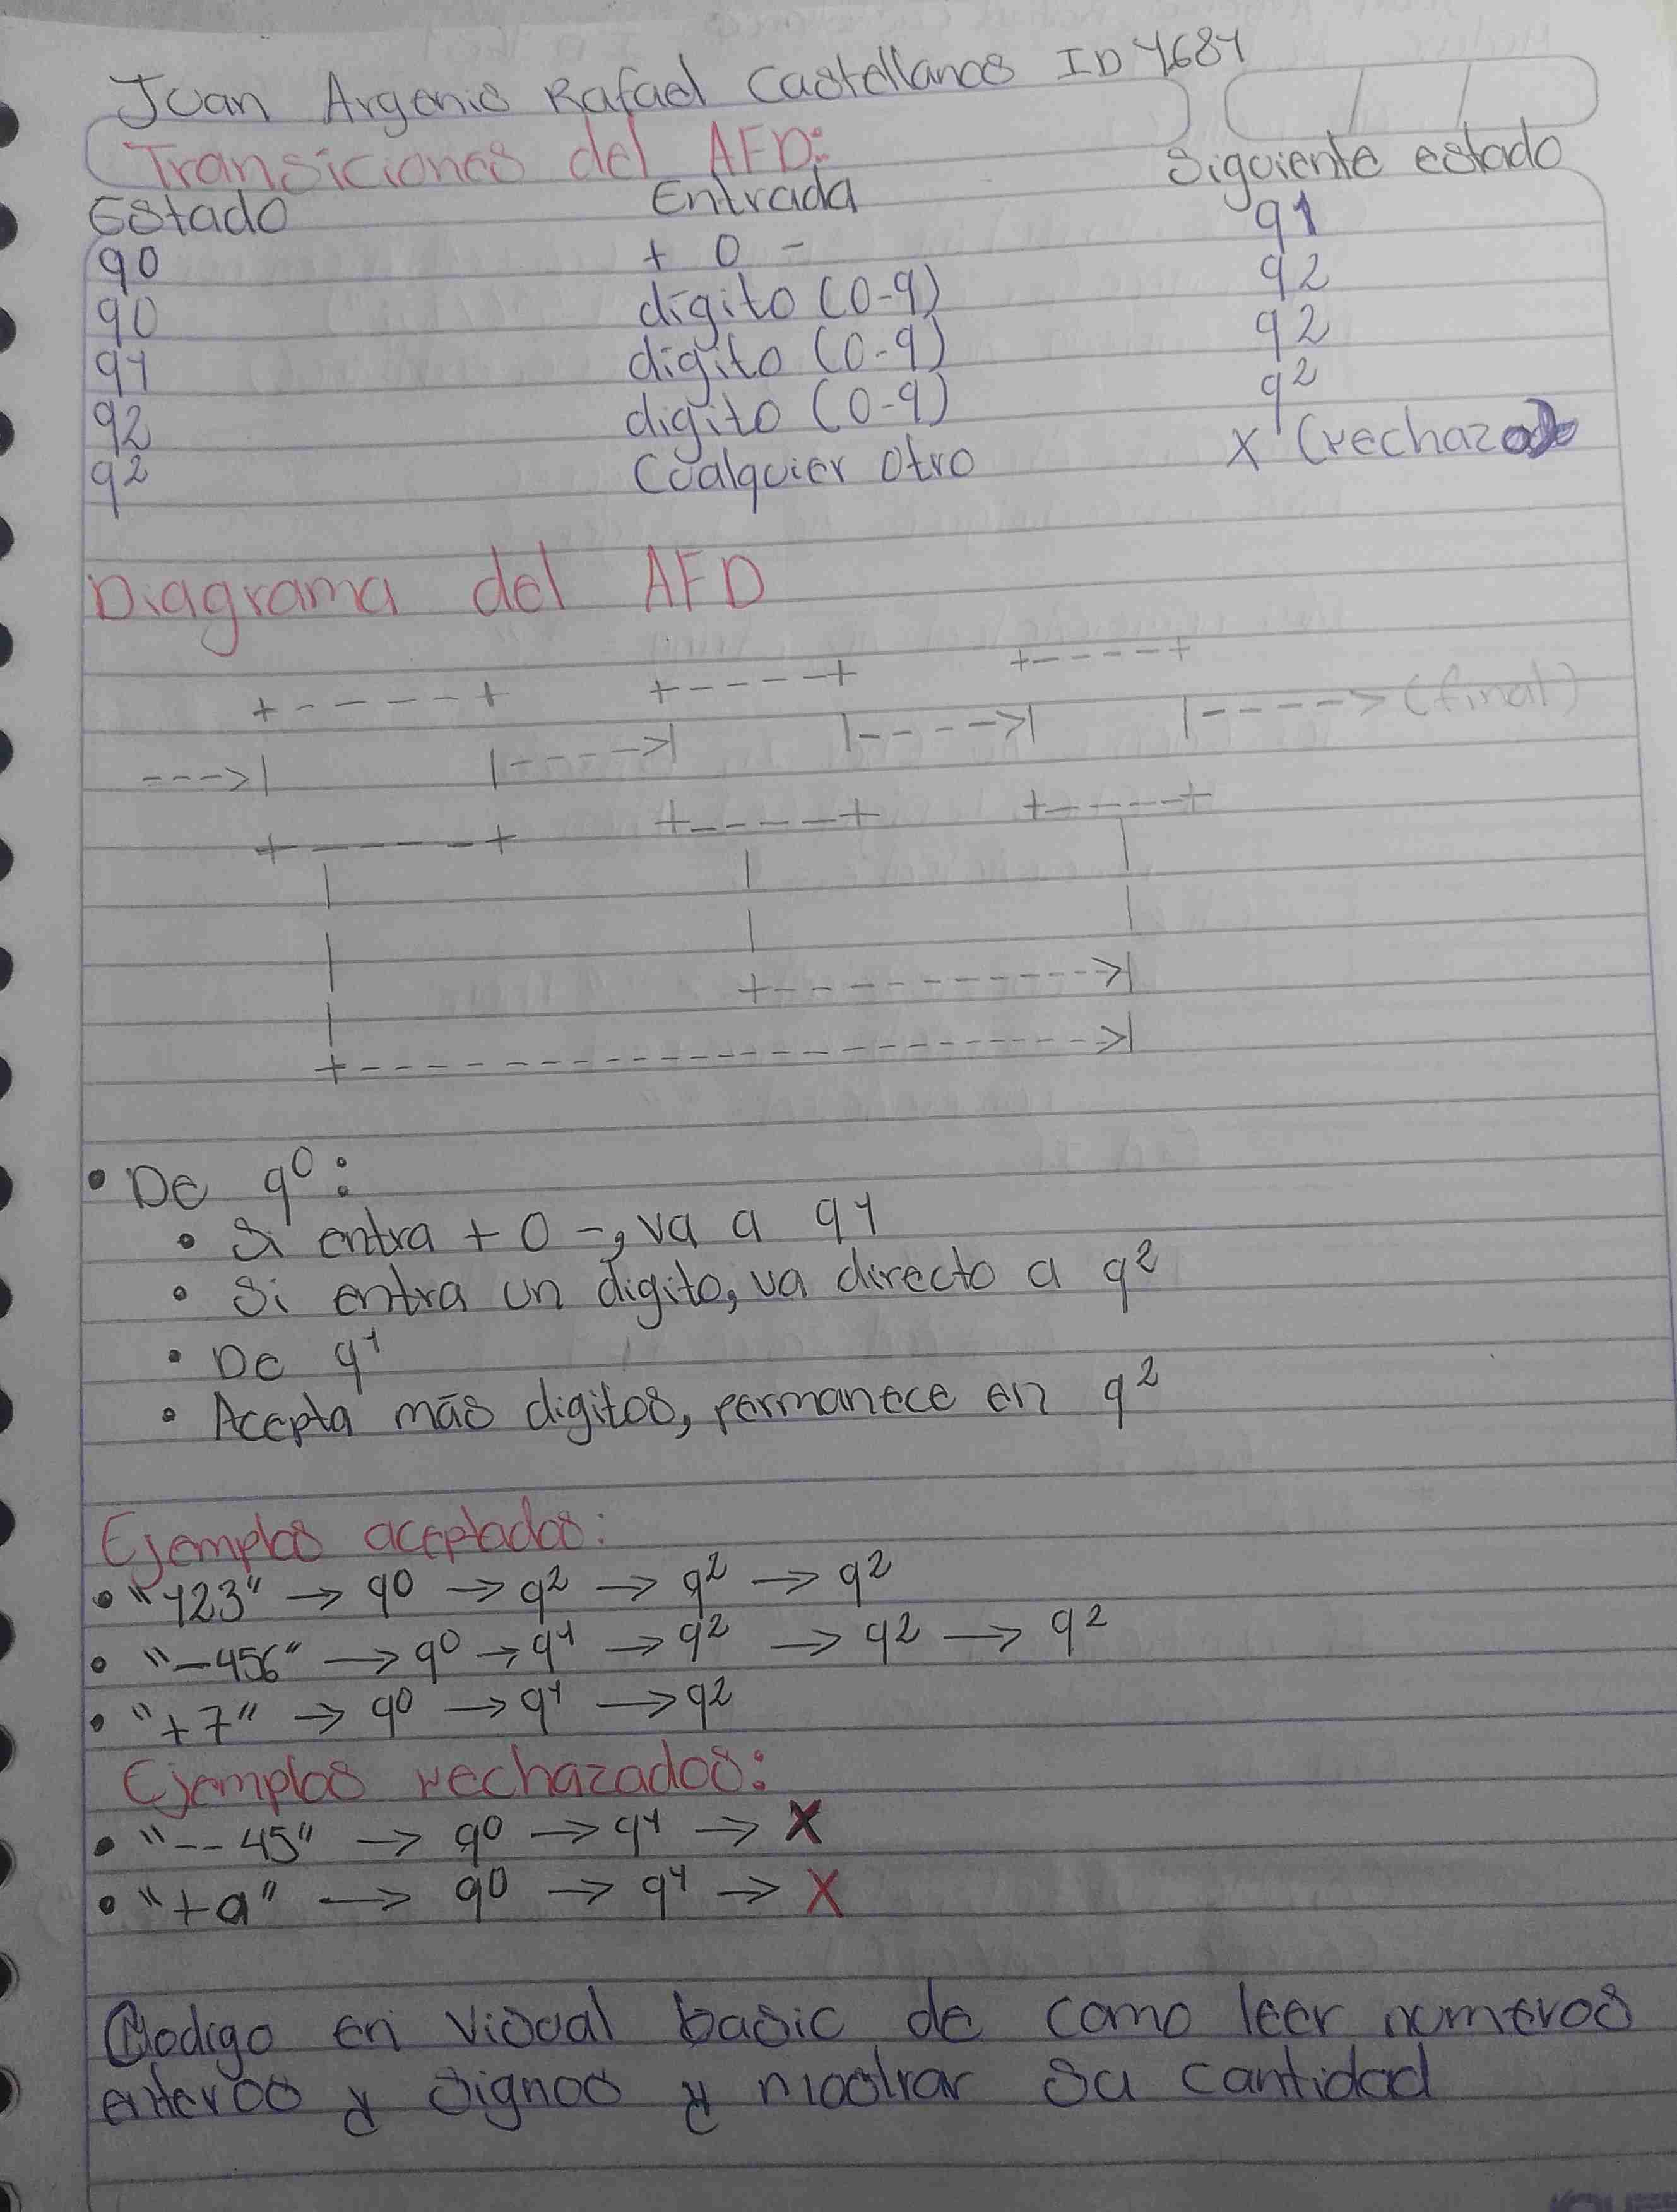 Juan Argenis Rafael Castellanos ID 1684
Transiciones del AFD:
Estado Entrada Siguiente estado
q0 + o - q1
q0 dígito (0-9) q2
q1 digito (0-9) q2
q2 digito (0-9) q2
q2 Cualquier otro X (rechazo)
Diagrama del AFD
+-----+ +-----+ +-----+
--->| |---->| |---->| |----> (final)
+-----+ +-----+ +-----+
| | |
| | |
| +---------->|
+--------------------->|
• De q0:
• Si entra + o -, va a q1
• Si entra un digito, va directo a q2
• De q1
• Acepta más digitos, permanece en q2
Ejemplos aceptados:
• "123" → q0 → q2 → q2 → q2
• "-456" → q0 → q1 → q2 → q2 → q2
• "+7" → q0 → q1 → q2
Ejemplos rechazados:
• "--45" → q0 → q1 → X
• "+a" → q0 → q1 → X
Codigo en Visual basic de como leer numeros
enteros y signos y mostrar su cantidad